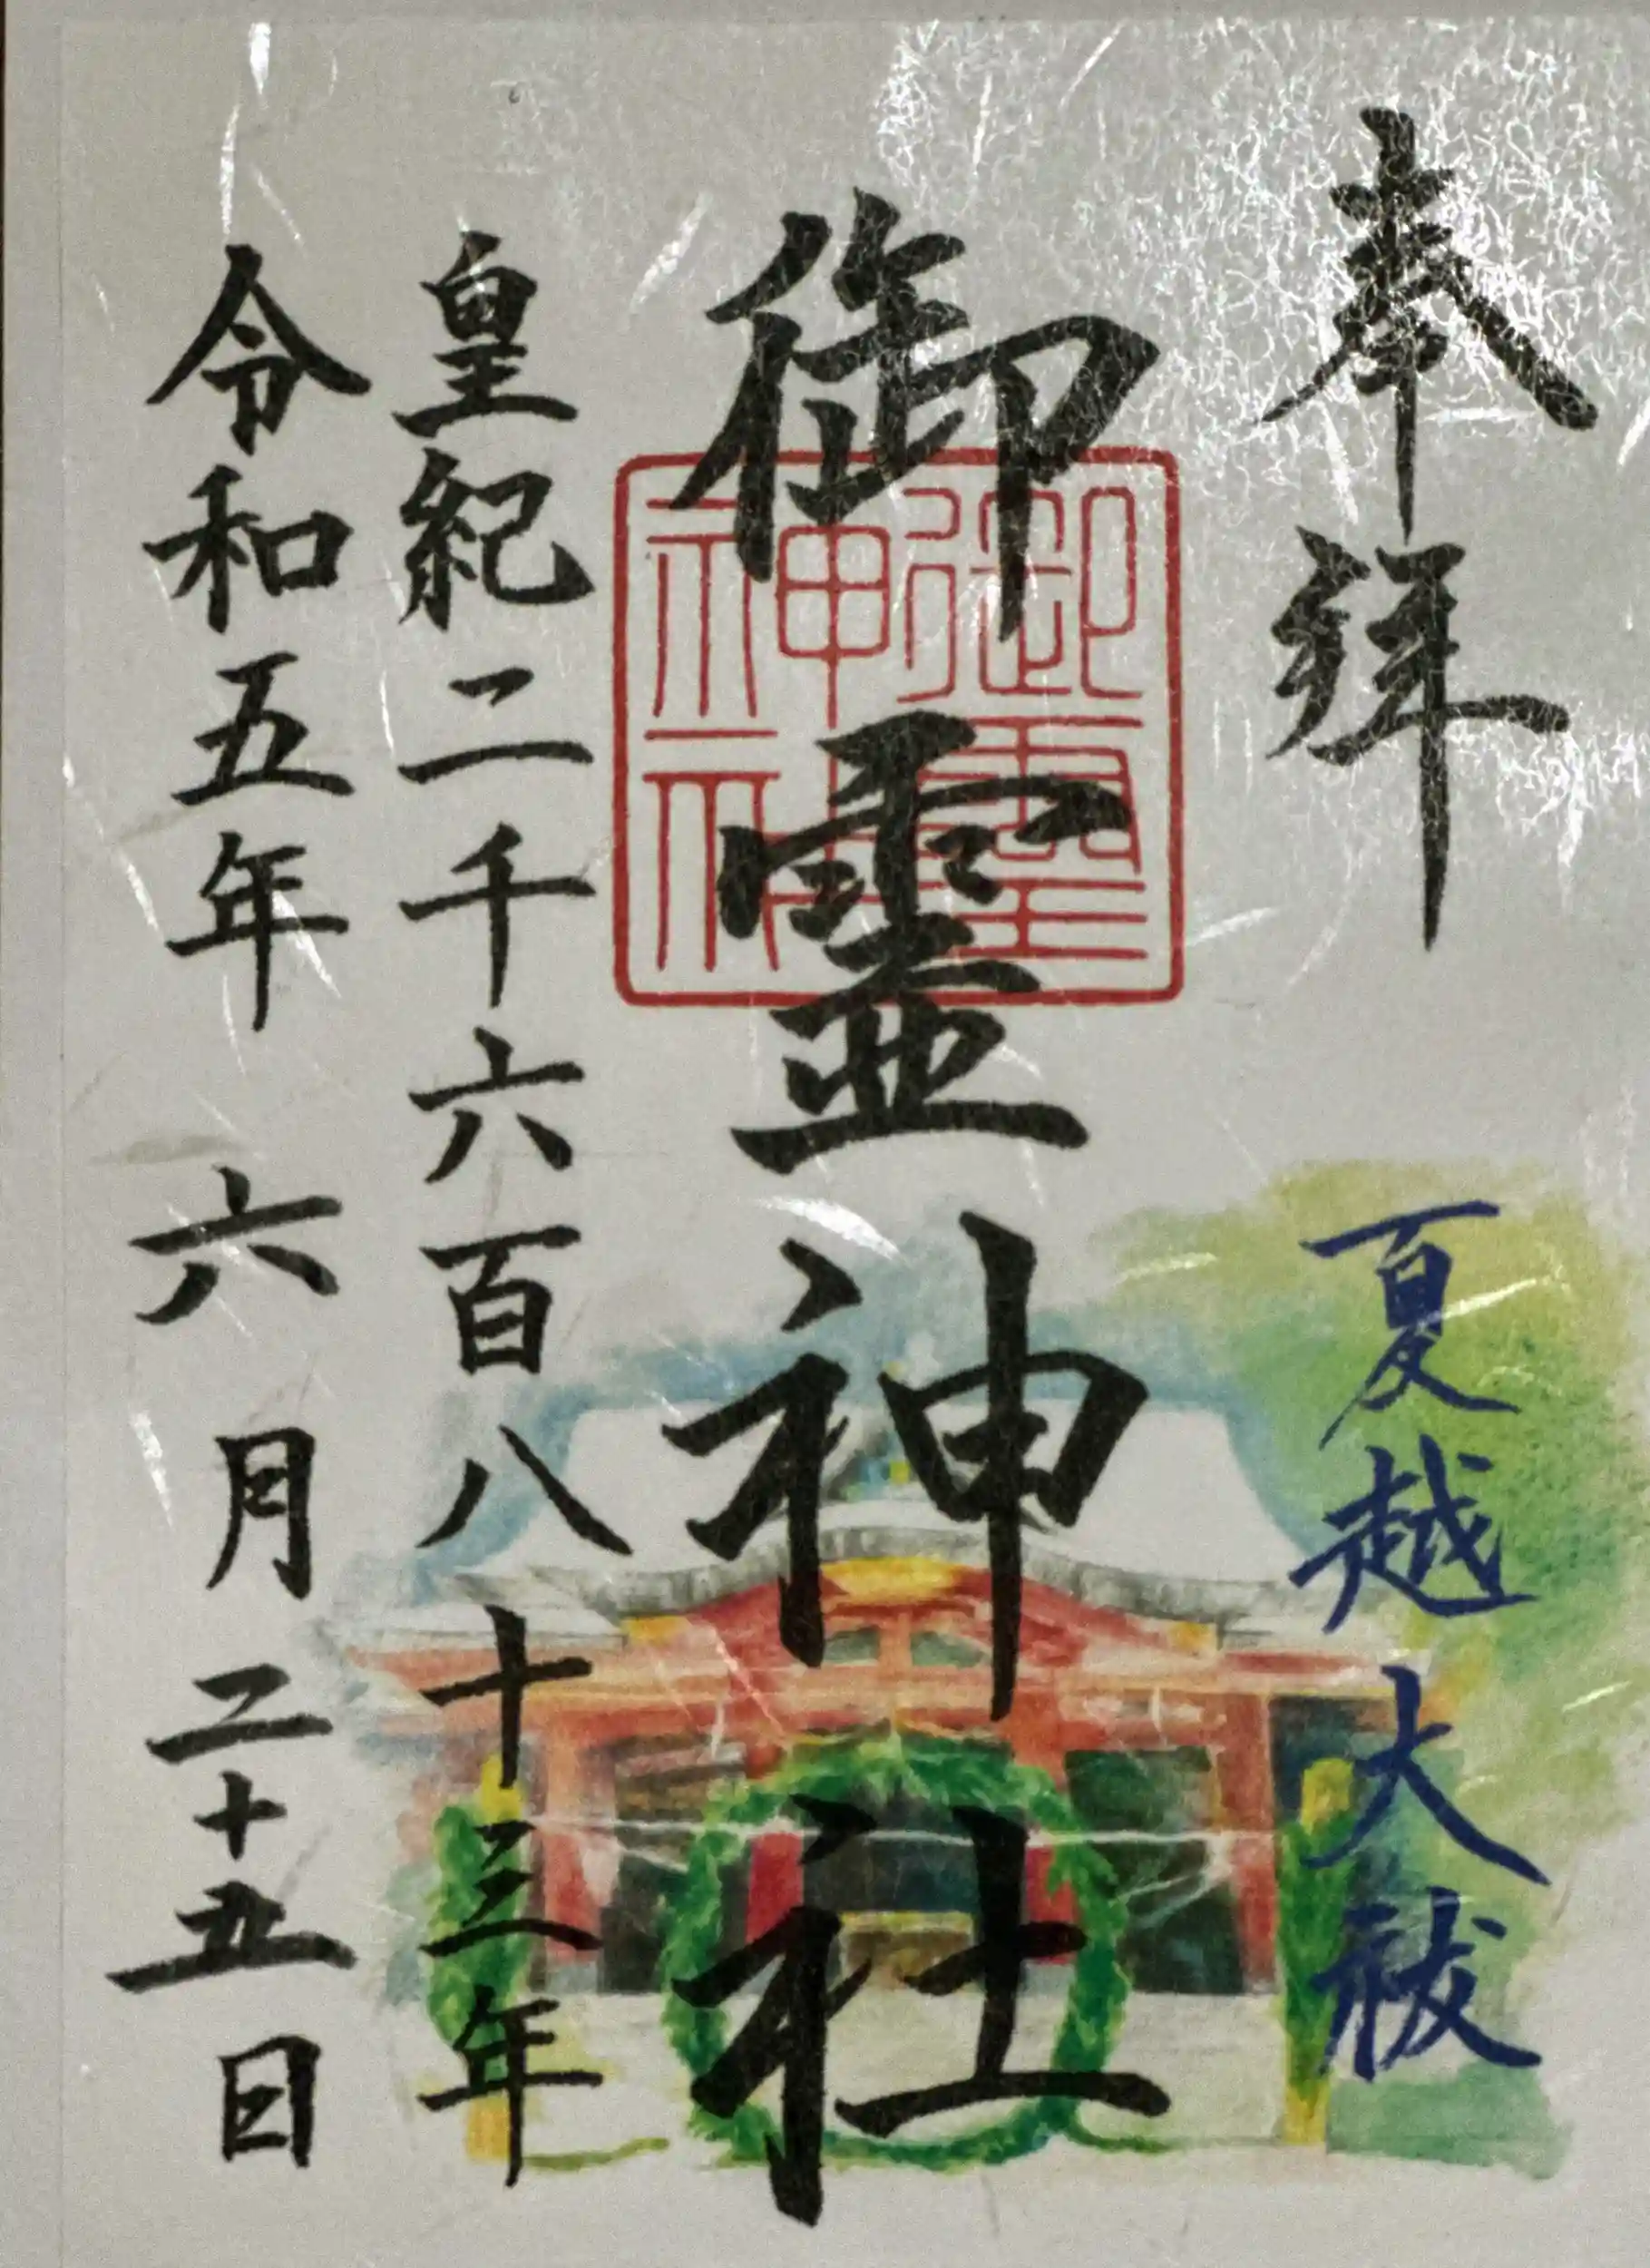 奉拝
夏越大祓
御靈神社
御靈神社
皇紀二千六百八十三年
令和五年 六月二十五日